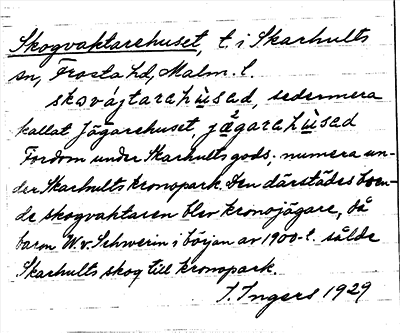 Skogvaktarehuset, t. i Skarhults
sn, Frosta hd, Malm. l.
skovájtarahùsad, sedermera
kallat Jägarehuset, jǽgarahùsad
Fordom under Skarhults gods; numera un-
der Skarhults kronopark. Den därstädes boen-
de skogvaktaren blev kronojägare, då
baron W. v. Schwerin i början av 1900-t. sålde
Skarhults skog till kronopark.
I. Ingers 1929